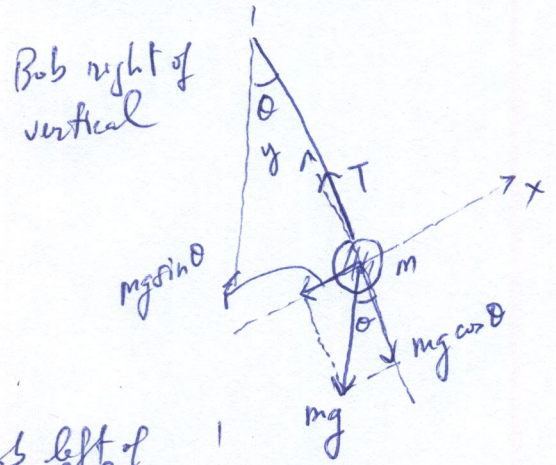 Bob right of
vertical
θ
y
T
x
mg sinθ
m
θ
mg cosθ
mg
left of